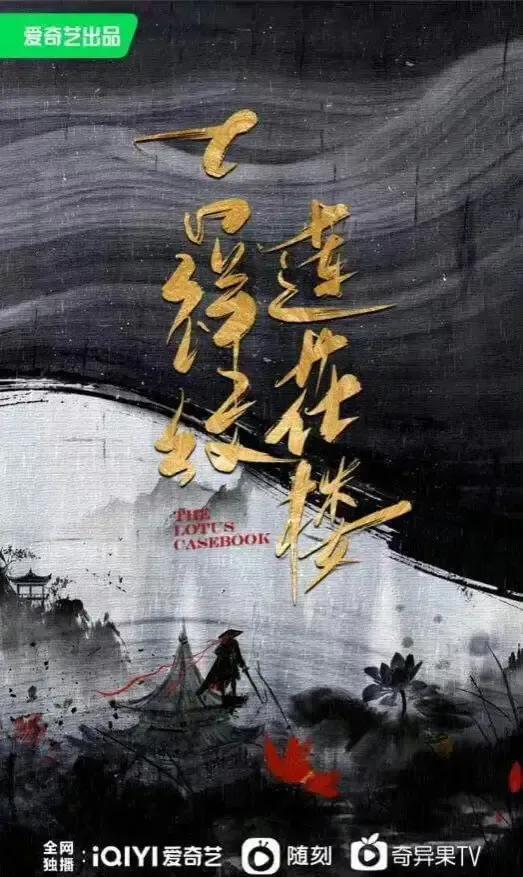 爱奇艺出品
吉祥纹
莲花楼
THE
LOTUS
CASEBOOK
全网
独播：iQIYI爱奇艺 随刻 奇异果TV